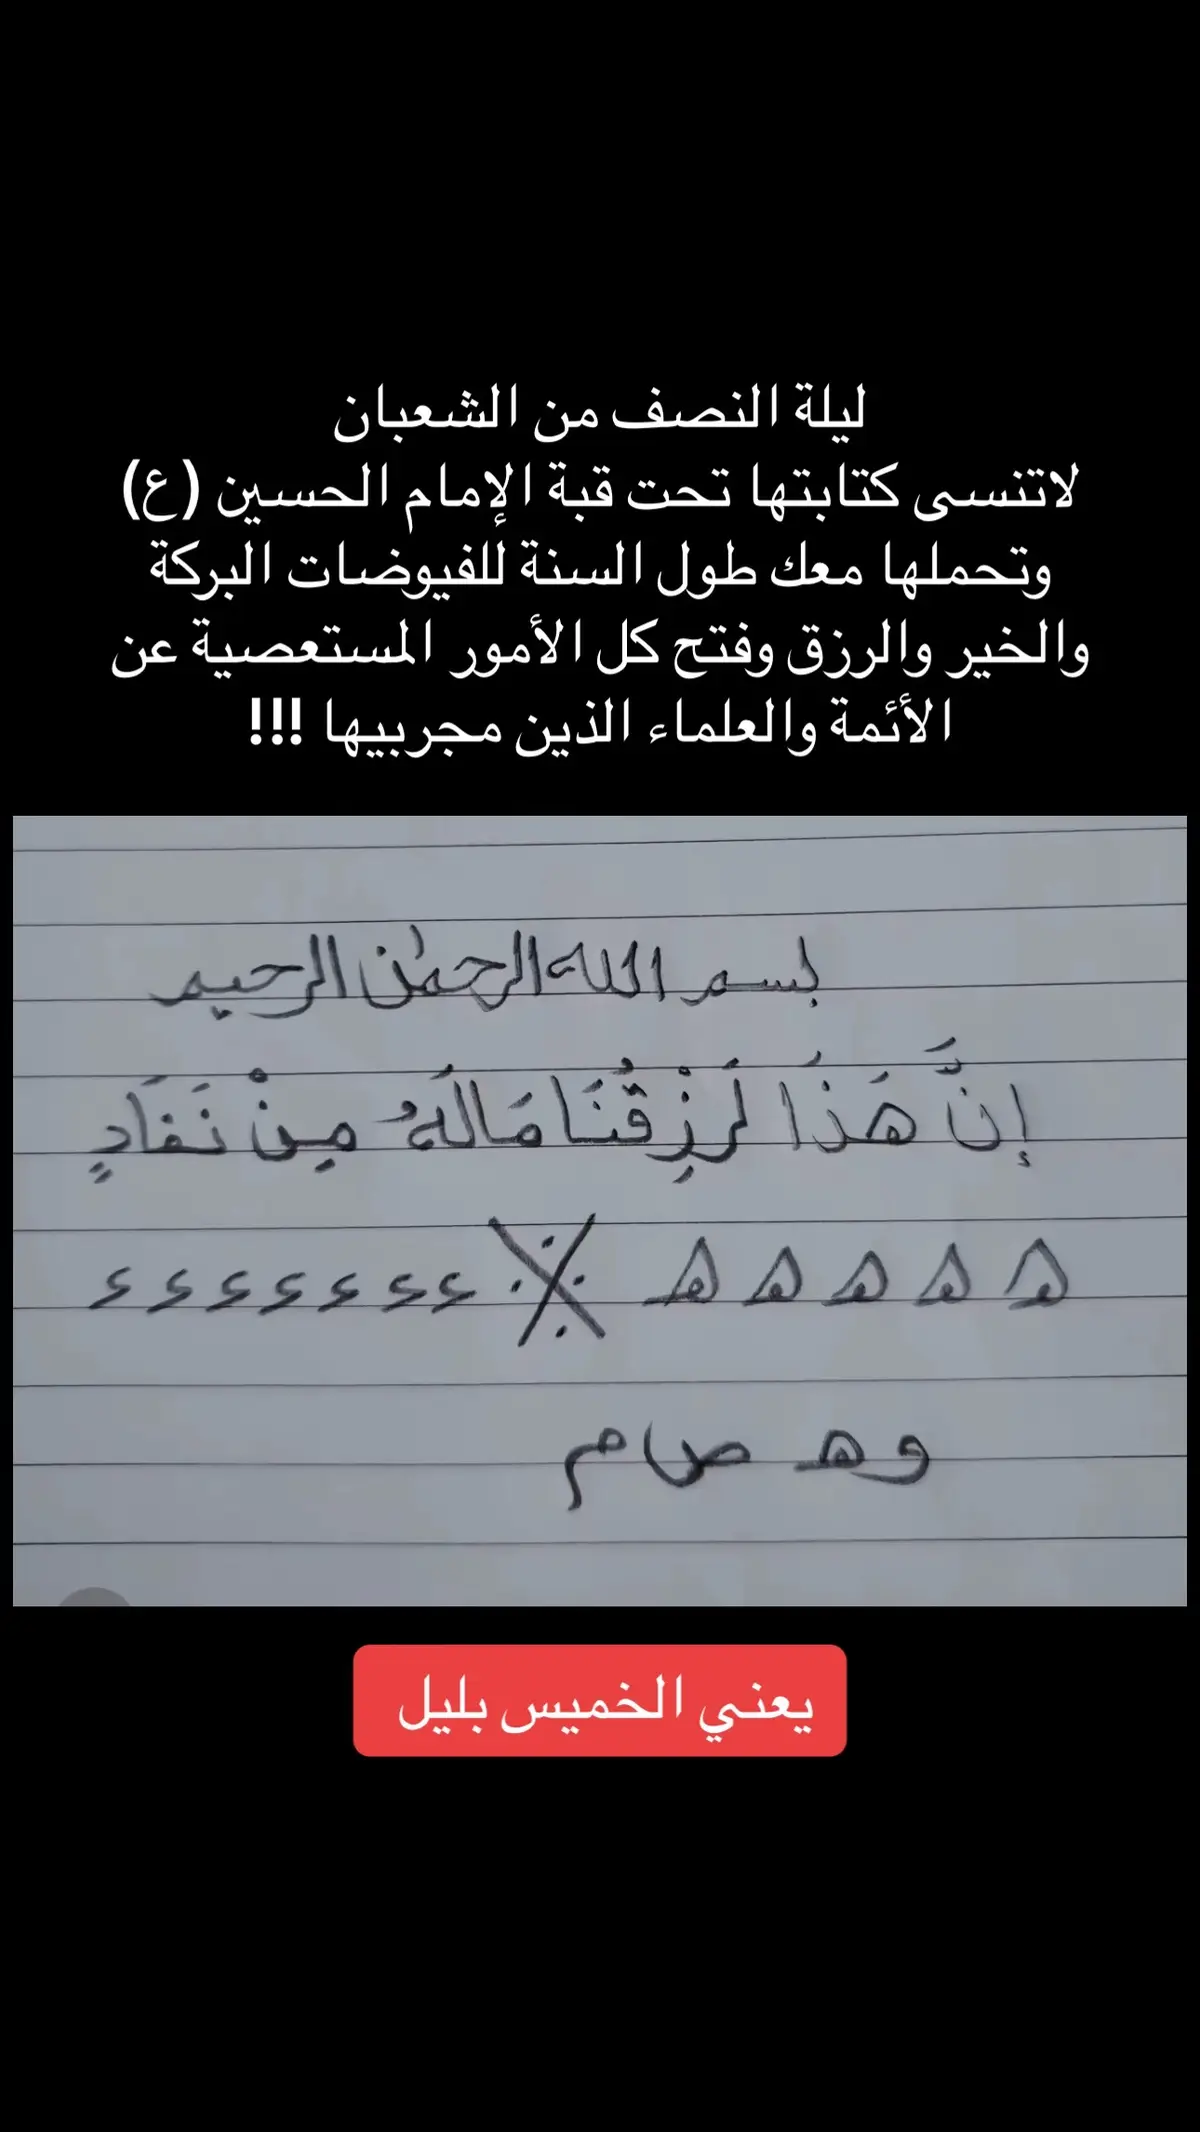 ليلة النصف من الشعبان
لاتنسى كتابتها تحت قبة الإمام الحسين (ع)
وتحملها معك طول السنة للفيوضات البركة
والخير والرزق وفتح كل الأمور المستعصية عن
الأئمة والعلماء الذين مجربيها !!!
بسم الله الرحمٰن الرحيم
إِنَّ هَذَا لَرِزْقُنَا مَالَهُ مِنْ نَفَادٍ
ه ه ه ه ه ※ ء ء ء ء ء ء ء
وه ص ا م
يعني الخميس بليل